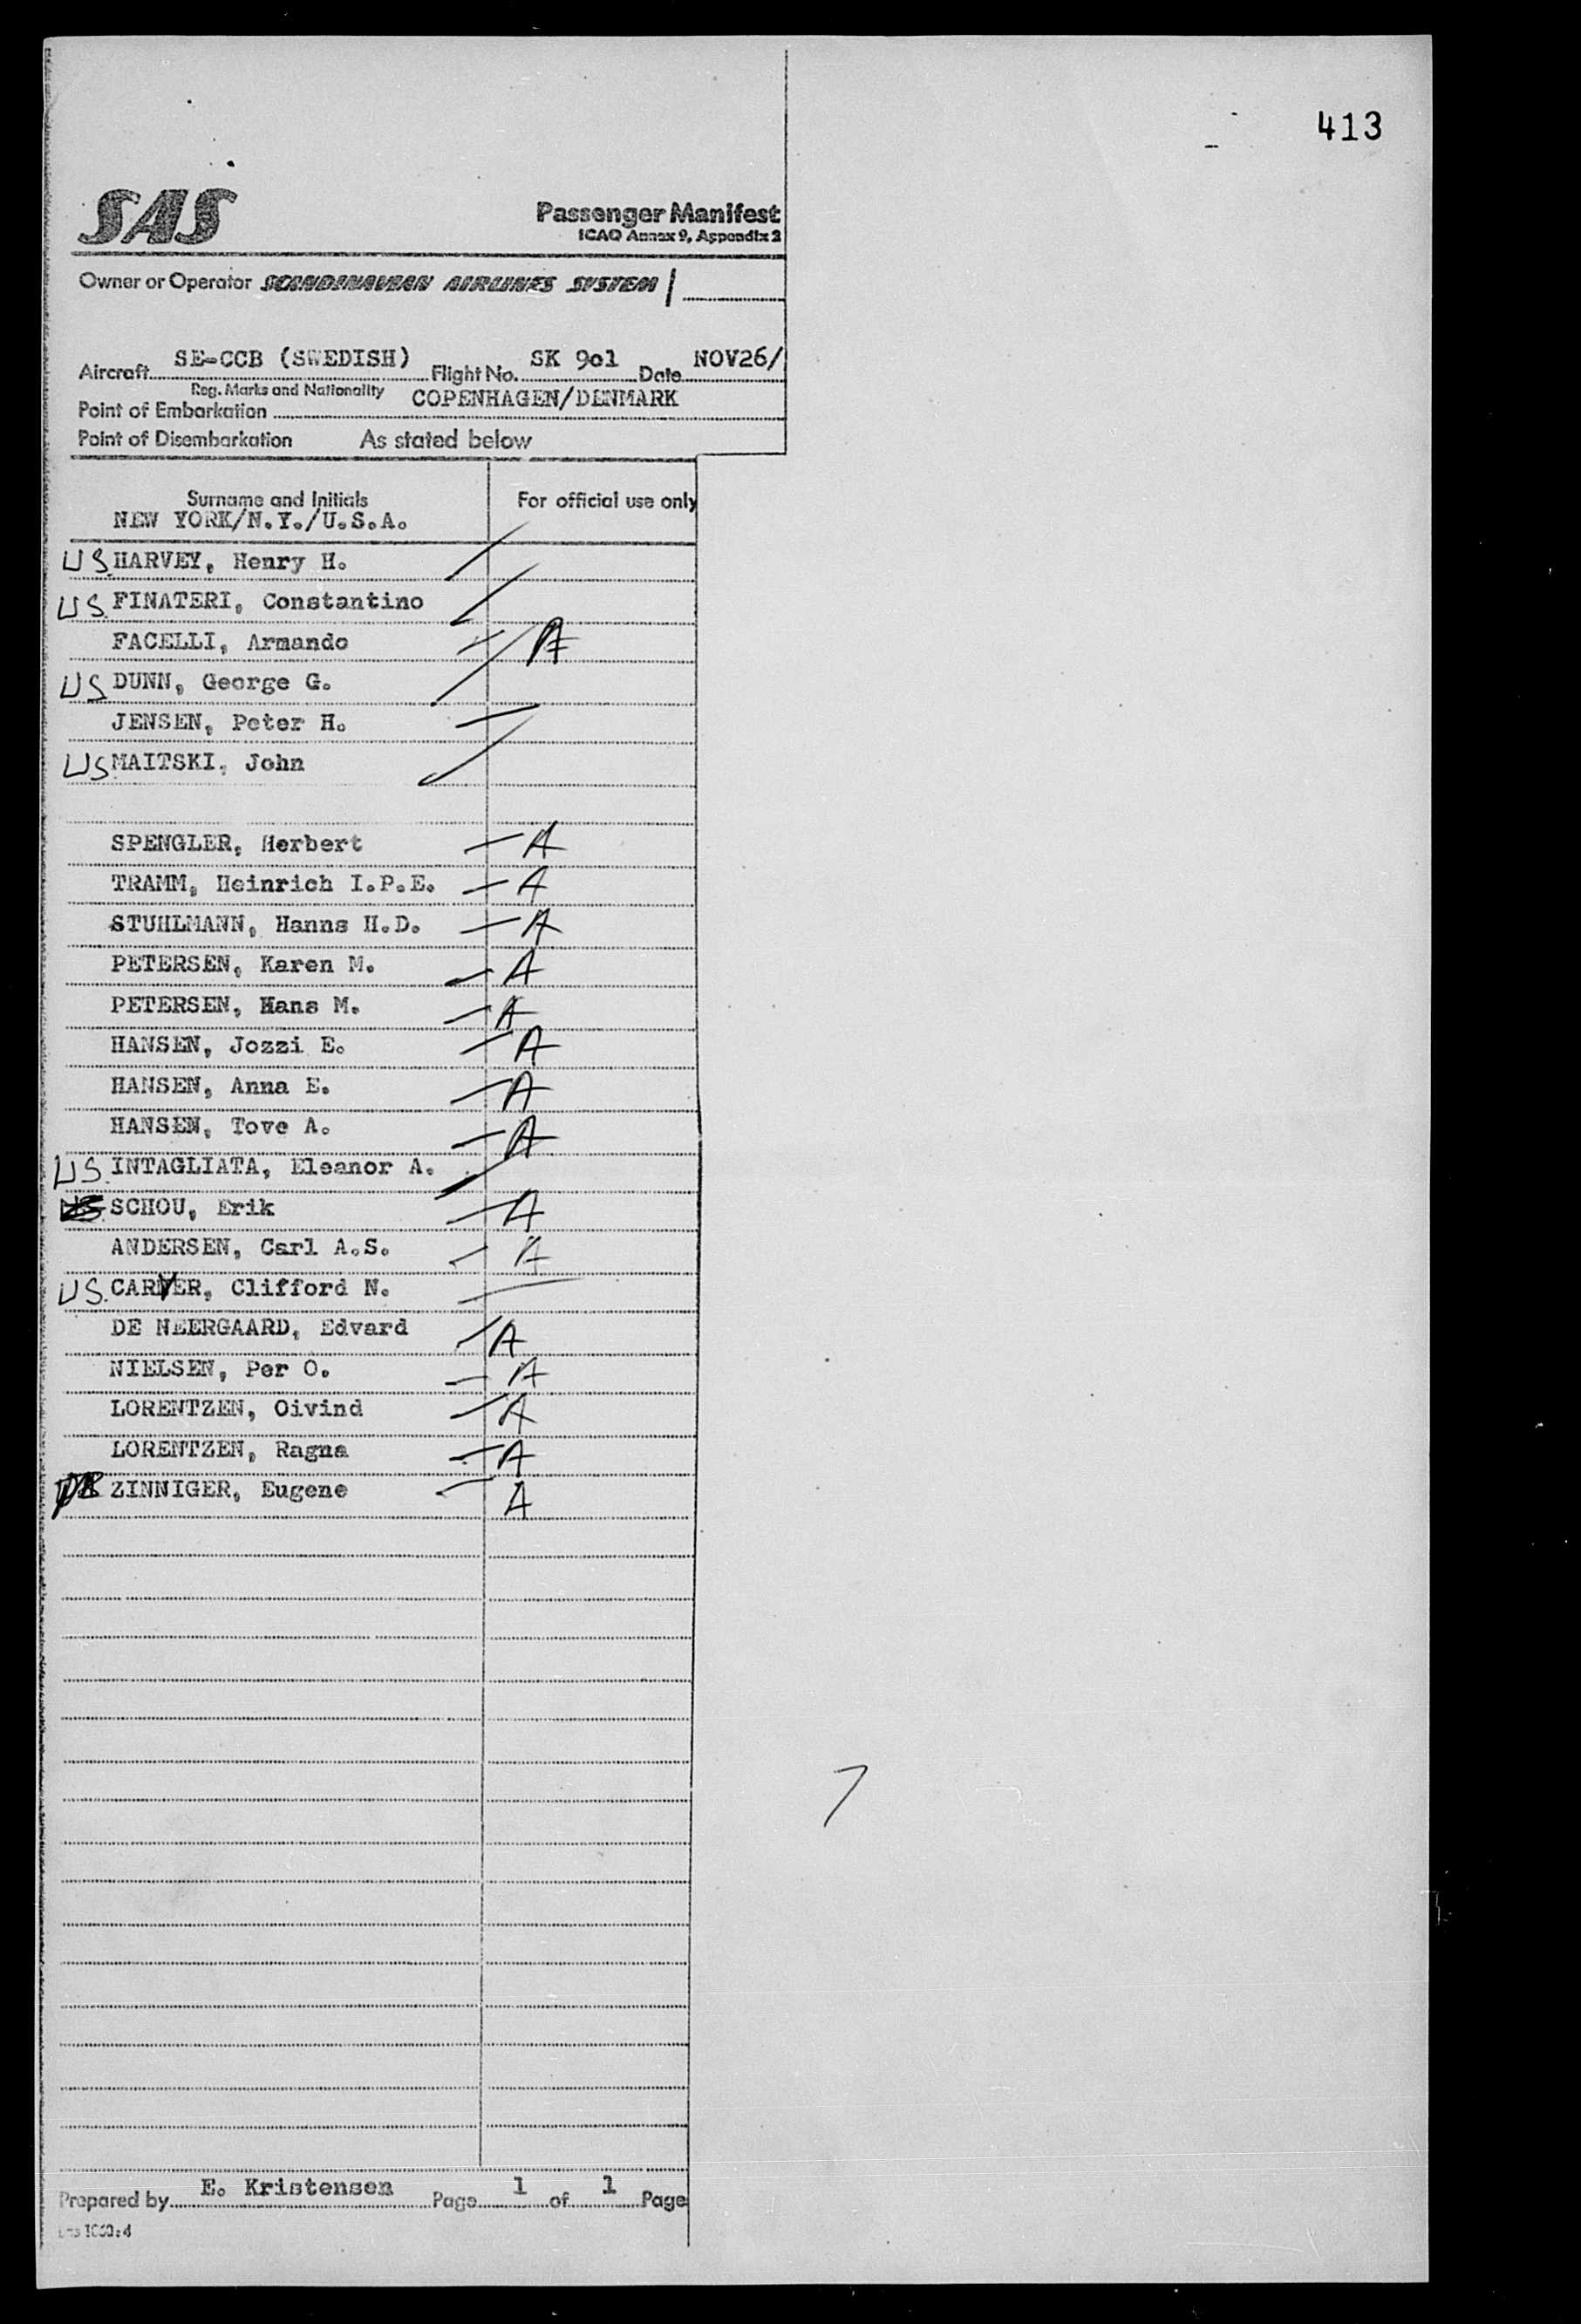 413
SAS
Passenger Manifest
ICAO Annex 9, Appendix 2
Owner or Operator SCANDINAVIAN AIRLINES SYSTEM
Aircraft SE-CCB (SWEDISH) Flight No. SK 901 Date NOV26/
Reg. Marks and Nationality
Point of Embarkation COPENHAGEN/DENMARK
Point of Disembarkation As stated below
Surname and Initials For official use only
NEW YORK/N.Y./U.S.A.
US HARVEY, Henry H.
US FINATERI, Constantino
FACELLI, Armando A
US DUNN, George G.
JENSEN, Peter H.
US MAITSKI, John
SPENGLER, Herbert A
TRAMM, Heinrich I.P.E. A
STUHLMANN, Hanns H.D. A
PETERSEN, Karen M. A
PETERSEN, Hans M. A
HANSEN, Jozzi E. A
HANSEN, Anna E. A
HANSEN, Tove A. A
US INTAGLIATA, Eleanor A.
SCHOU, Erik A
ANDERSEN, Carl A.S. A
US CARVER, Clifford N.
DE NEERGAARD, Edvard A
NIELSEN, Per O. A
LORENTZEN, Oivind A
LORENTZEN, Ragna A
ZINNIGER, Eugene A
Prepared by E. Kristensen Page 1 of 1 Page